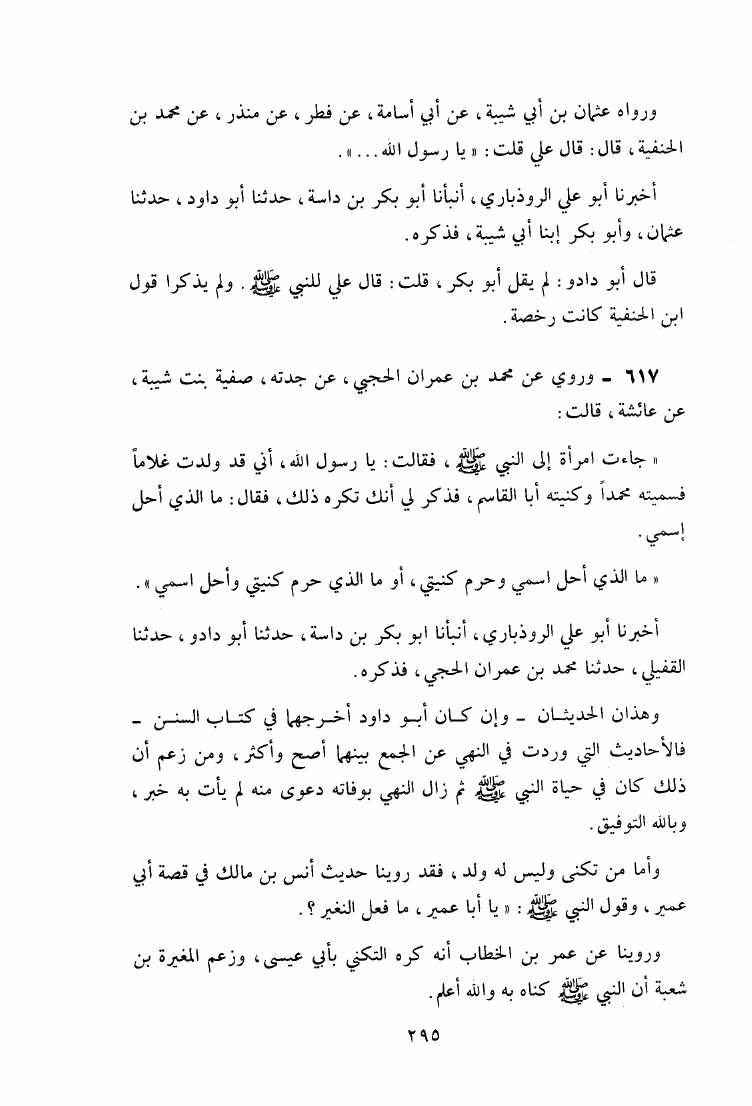 ورواه عثمان بن أبي شيبة، عن أبي أسامة، عن فطر، عن منذر، عن محمد بن
الحنفية، قال: قال علي قلت: «يا رسول الله...».
أخبرنا أبو علي الروذباري، أنبأنا أبو بكر بن داسة، حدثنا أبو داود، حدثنا
عثمان، وأبو بكر إبنا أبي شيبة، فذكره.
قال أبو دادو: لم يقل أبو بكر، قلت: قال علي للنبي ﷺ. ولم يذكرا قول
ابن الحنفية كانت رخصة.
٦١٧ - وروي عن محمد بن عمران الحجبي، عن جدته، صفية بنت شيبة،
عن عائشة، قالت:
«جاءت امرأة إلى النبي ﷺ، فقالت: يا رسول الله، أني قد ولدت غلاماً
فسميته محمداً وكنيته أبا القاسم، فذكر لي أنك تكره ذلك، فقال: ما الذي أحل
إسمي.
«ما الذي أحل اسمي وحرم كنيتي، أو ما الذي حرم كنيتي وأحل اسمي».
أخبرنا أبو علي الروذباري، أنبأنا ابو بكر بن داسة، حدثنا أبو دادو، حدثنا
القفيلي، حدثنا محمد بن عمران الحجي، فذكره.
وهذان الحديثان - وإن كان أبو داود أخرجهما في كتاب السنن -
فالأحاديث التي وردت في النهي عن الجمع بينهما أصح وأكثر، ومن زعم أن
ذلك كان في حياة النبي ﷺ ثم زال النهي بوفاته دعوى منه لم يأت به خبر،
وبالله التوفيق.
وأما من تكنى وليس له ولد، فقد روينا حديث أنس بن مالك في قصة أبي
عمير، وقول النبي ﷺ: «يا أبا عمير، ما فعل النغير؟.
وروينا عن عمر بن الخطاب أنه كره التكني بأبي عيسى، وزعم المغيرة بن
شعبة أن النبي ﷺ كناه به والله أعلم.
٢٩٥